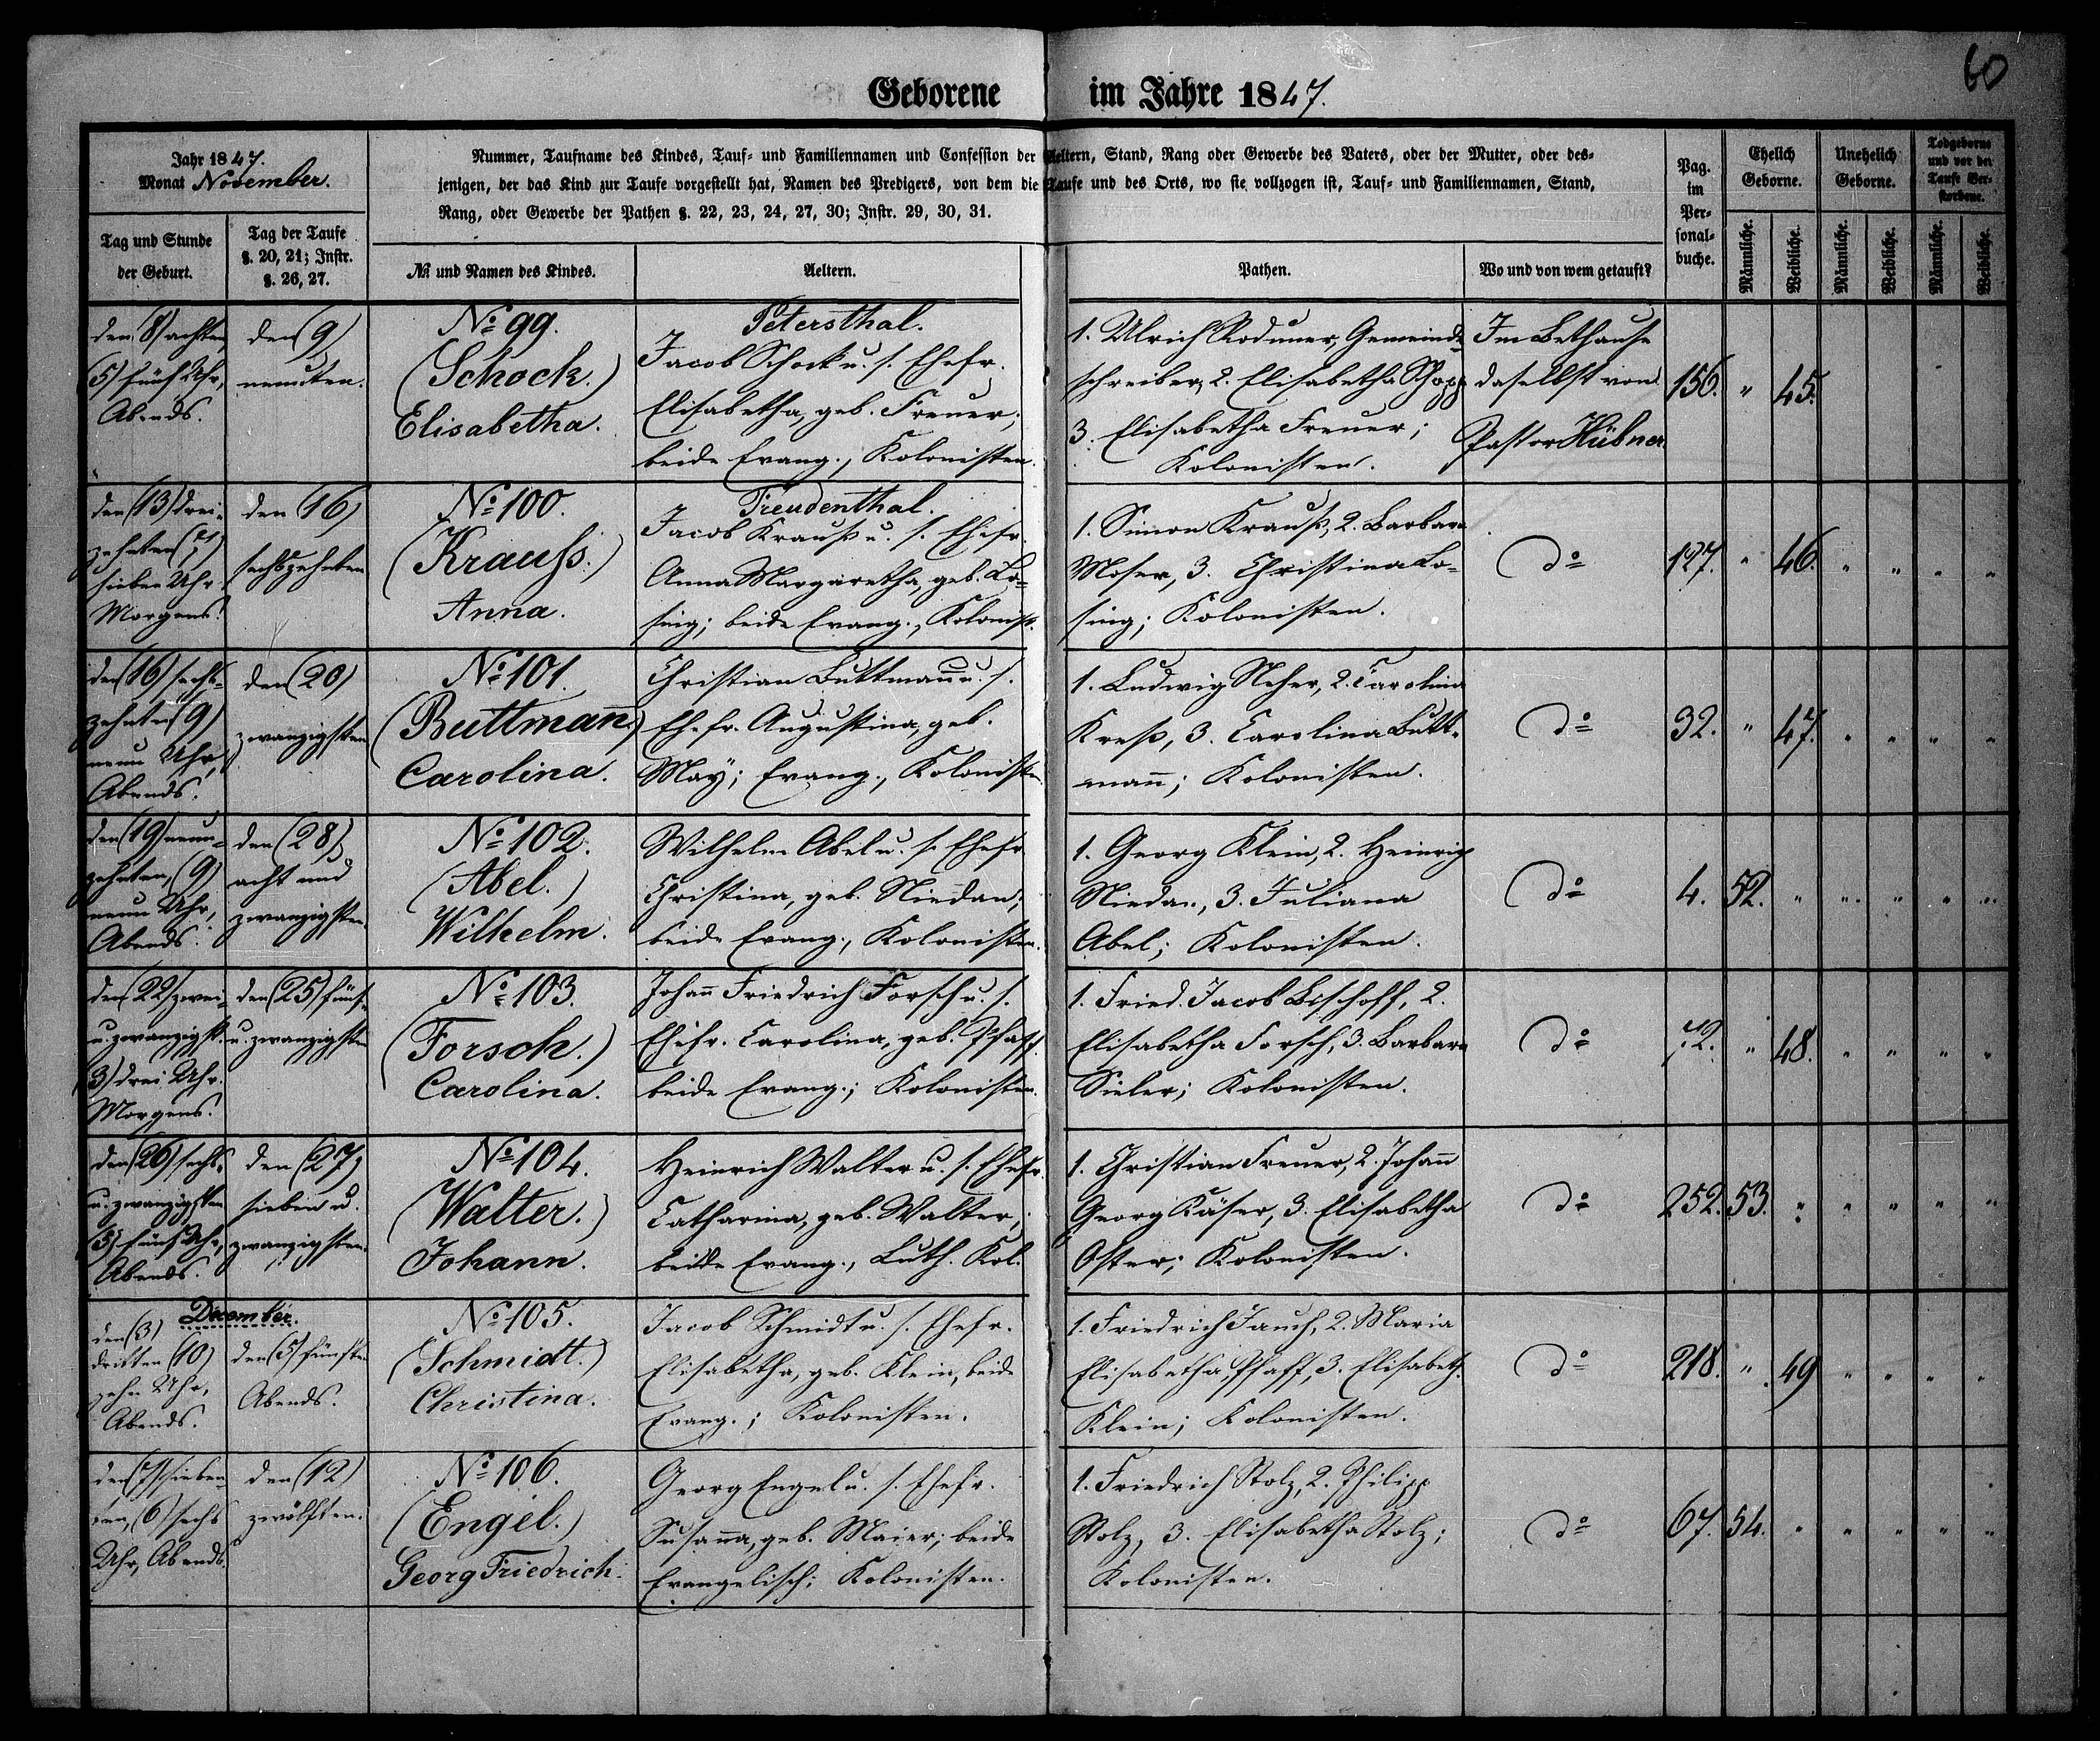 60
Geborene im Jahre 1847.
Jahr 1847.
Monat November.
Nummer, Taufname des Kindes, Tauf- und Familiennamen und Confession der Aeltern, Stand, Rang oder Gewerbe des Vaters, oder der Mutter, oder des-
jenigen, der das Kind zur Taufe vorgestellt hat, Namen des Predigers, von dem die Taufe und des Orts, wo sie vollzogen ist, Tauf- und Familiennamen, Stand,
Rang, oder Gewerbe der Pathen §. 22, 23, 24, 27, 30; Instr. 29, 30, 31.
Pag.
im
Per-
sonal-
buche.
Ehelich
Geborne.
Unehelich
Geborne.
Todgeborne
und vor der
Taufe Ver-
storbene.
Tag und Stunde
der Geburt.
Tag der Taufe
§. 20, 21; Instr.
§. 26, 27.
№ und Namen des Kindes.
Aeltern.
Pathen.
Wo und von wem getauft?
Männliche.
Weibliche.
Männliche.
Weibliche.
Männliche.
Weibliche.
den (8) achten
(5) fünf Uhr,
Abends.
den (9)
neunten.
№ 99.
(Schock.)
Elisabetha.
Petersthal.
Jacob Schock u. s. Ehefr.
Elisabetha, geb. Freuer;
beide Evang., Kolonisten.
1. Ulrich Roduner, Gemeinde-
schreiber, 2. Elisabetha Schopp
3. Elisabetha Freuer;
Kolonisten.
Im Bethause
daselbst von
Pastor Hübner
156. " 45.
den (13) drei-
zehnten (7)
sieben Uhr
Morgens.
den (16)
sechszehnten
№ 100.
(Krauß.)
Anna.
Freudenthal.
Jacob Krauß u. s. Ehefr.
Anna Margaretha, geb. Lo-
sing; beide Evang., Kolonist.
1. Simon Krauß, 2. Barbara
Moser, 3. Christina Lo-
sing; Kolonisten.
do
127. " 46. " " " "
den (16) sechs-
zehnten (9)
neun Uhr,
Abends.
den (20)
zwanzigsten
№ 101.
(Buttmañ.)
Carolina.
Christian Buttmañ u. s.
Ehefr. Augustina, geb.
May; Evang., Kolonisten.
1. Ludwig Neher, 2. Carolina
Kreß, 3. Carolina Butt-
mañ; Kolonisten.
do
32. " 47. " " " "
den (19) neun-
zehnten, (9)
neun Uhr,
Abends.
den (28)
acht und
zwanzigsten.
№ 102.
(Abel.)
Wilhelm.
Wilhelm Abel u. s. Ehefr.
Christina, geb. Niedan;
beide Evang., Kolonisten.
1. Georg Klein, 2. Heinrich
Niedan, 3. Juliana
Abel; Kolonisten.
do
4. 52. " " " " "
den (22) zwei-
u. zwanzigst.
(3) drei Uhr.
Morgens.
den (25) fünf-
u. zwanzigsten
№ 103.
(Forsch.)
Carolina.
Johañ Friedrich Forsch u. s.
Ehefr. Carolina, geb. Pfaff.
beide Evang.; Kolonisten.
1. Fried. Jacob Bischoff, 2.
Elisabetha Forsch, 3. Barbara
Sieler; Kolonisten.
do
72. " 48. " " " "
den (26) sechs-
u. zwanzigsten
(5) fünf Uhr,
Abends.
den (27)
sieben u.
zwanzigsten.
№ 104.
(Walter.)
Johann.
Heinrich Walter u. s. Ehefr.
Catharina, geb. Walter;
beide Evang., Luth. Kol.
1. Christian Freuer, 2. Johañ
Georg Käser, 3. Elisabetha
Oster; Kolonisten.
do
252. 53. " " " " "
December.
den (3)
dritten (10)
zehn Uhr,
Abends.
den (5) fünften
Abends.
№ 105.
(Schmidt.)
Christina.
Jacob Schmidt u. s. Ehefr.
Elisabetha, geb. Klein, beide
Evang.; Kolonisten.
1. Friedrich Jauch, 2. Maria
Elisabetha Pfaff, 3. Elisabeth.
Klein; Kolonisten.
do
218. " 49 " " " "
den (7) sieben-
ten, (6) sechs
Uhr, Abends.
den (12)
zwölften.
№ 106.
(Engel.)
Georg Friedrich.
Georg Engel u. s. Ehefr.
Susaña, geb. Maier; beide
Evangelisch; Kolonisten.
1. Friedrich Stolz, 2. Philipp
Stolz, 3. Elisabetha Stolz;
Kolonisten.
do
67. 54. " " " " "